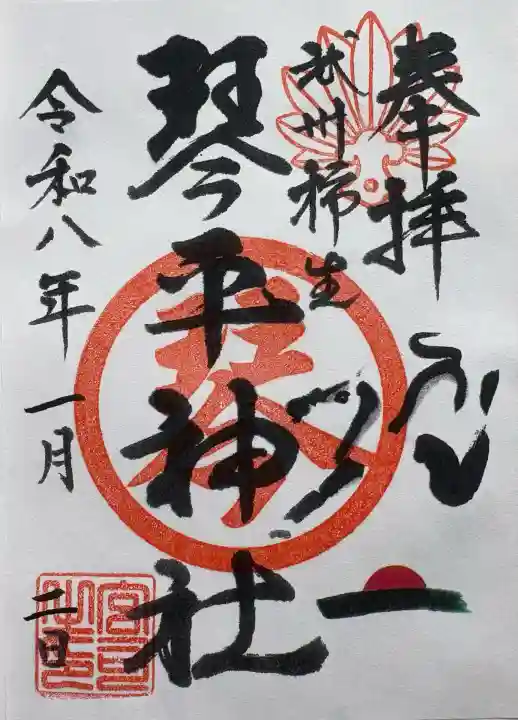 奉拝
武州柿生
琴平神社
令和八年一月二日